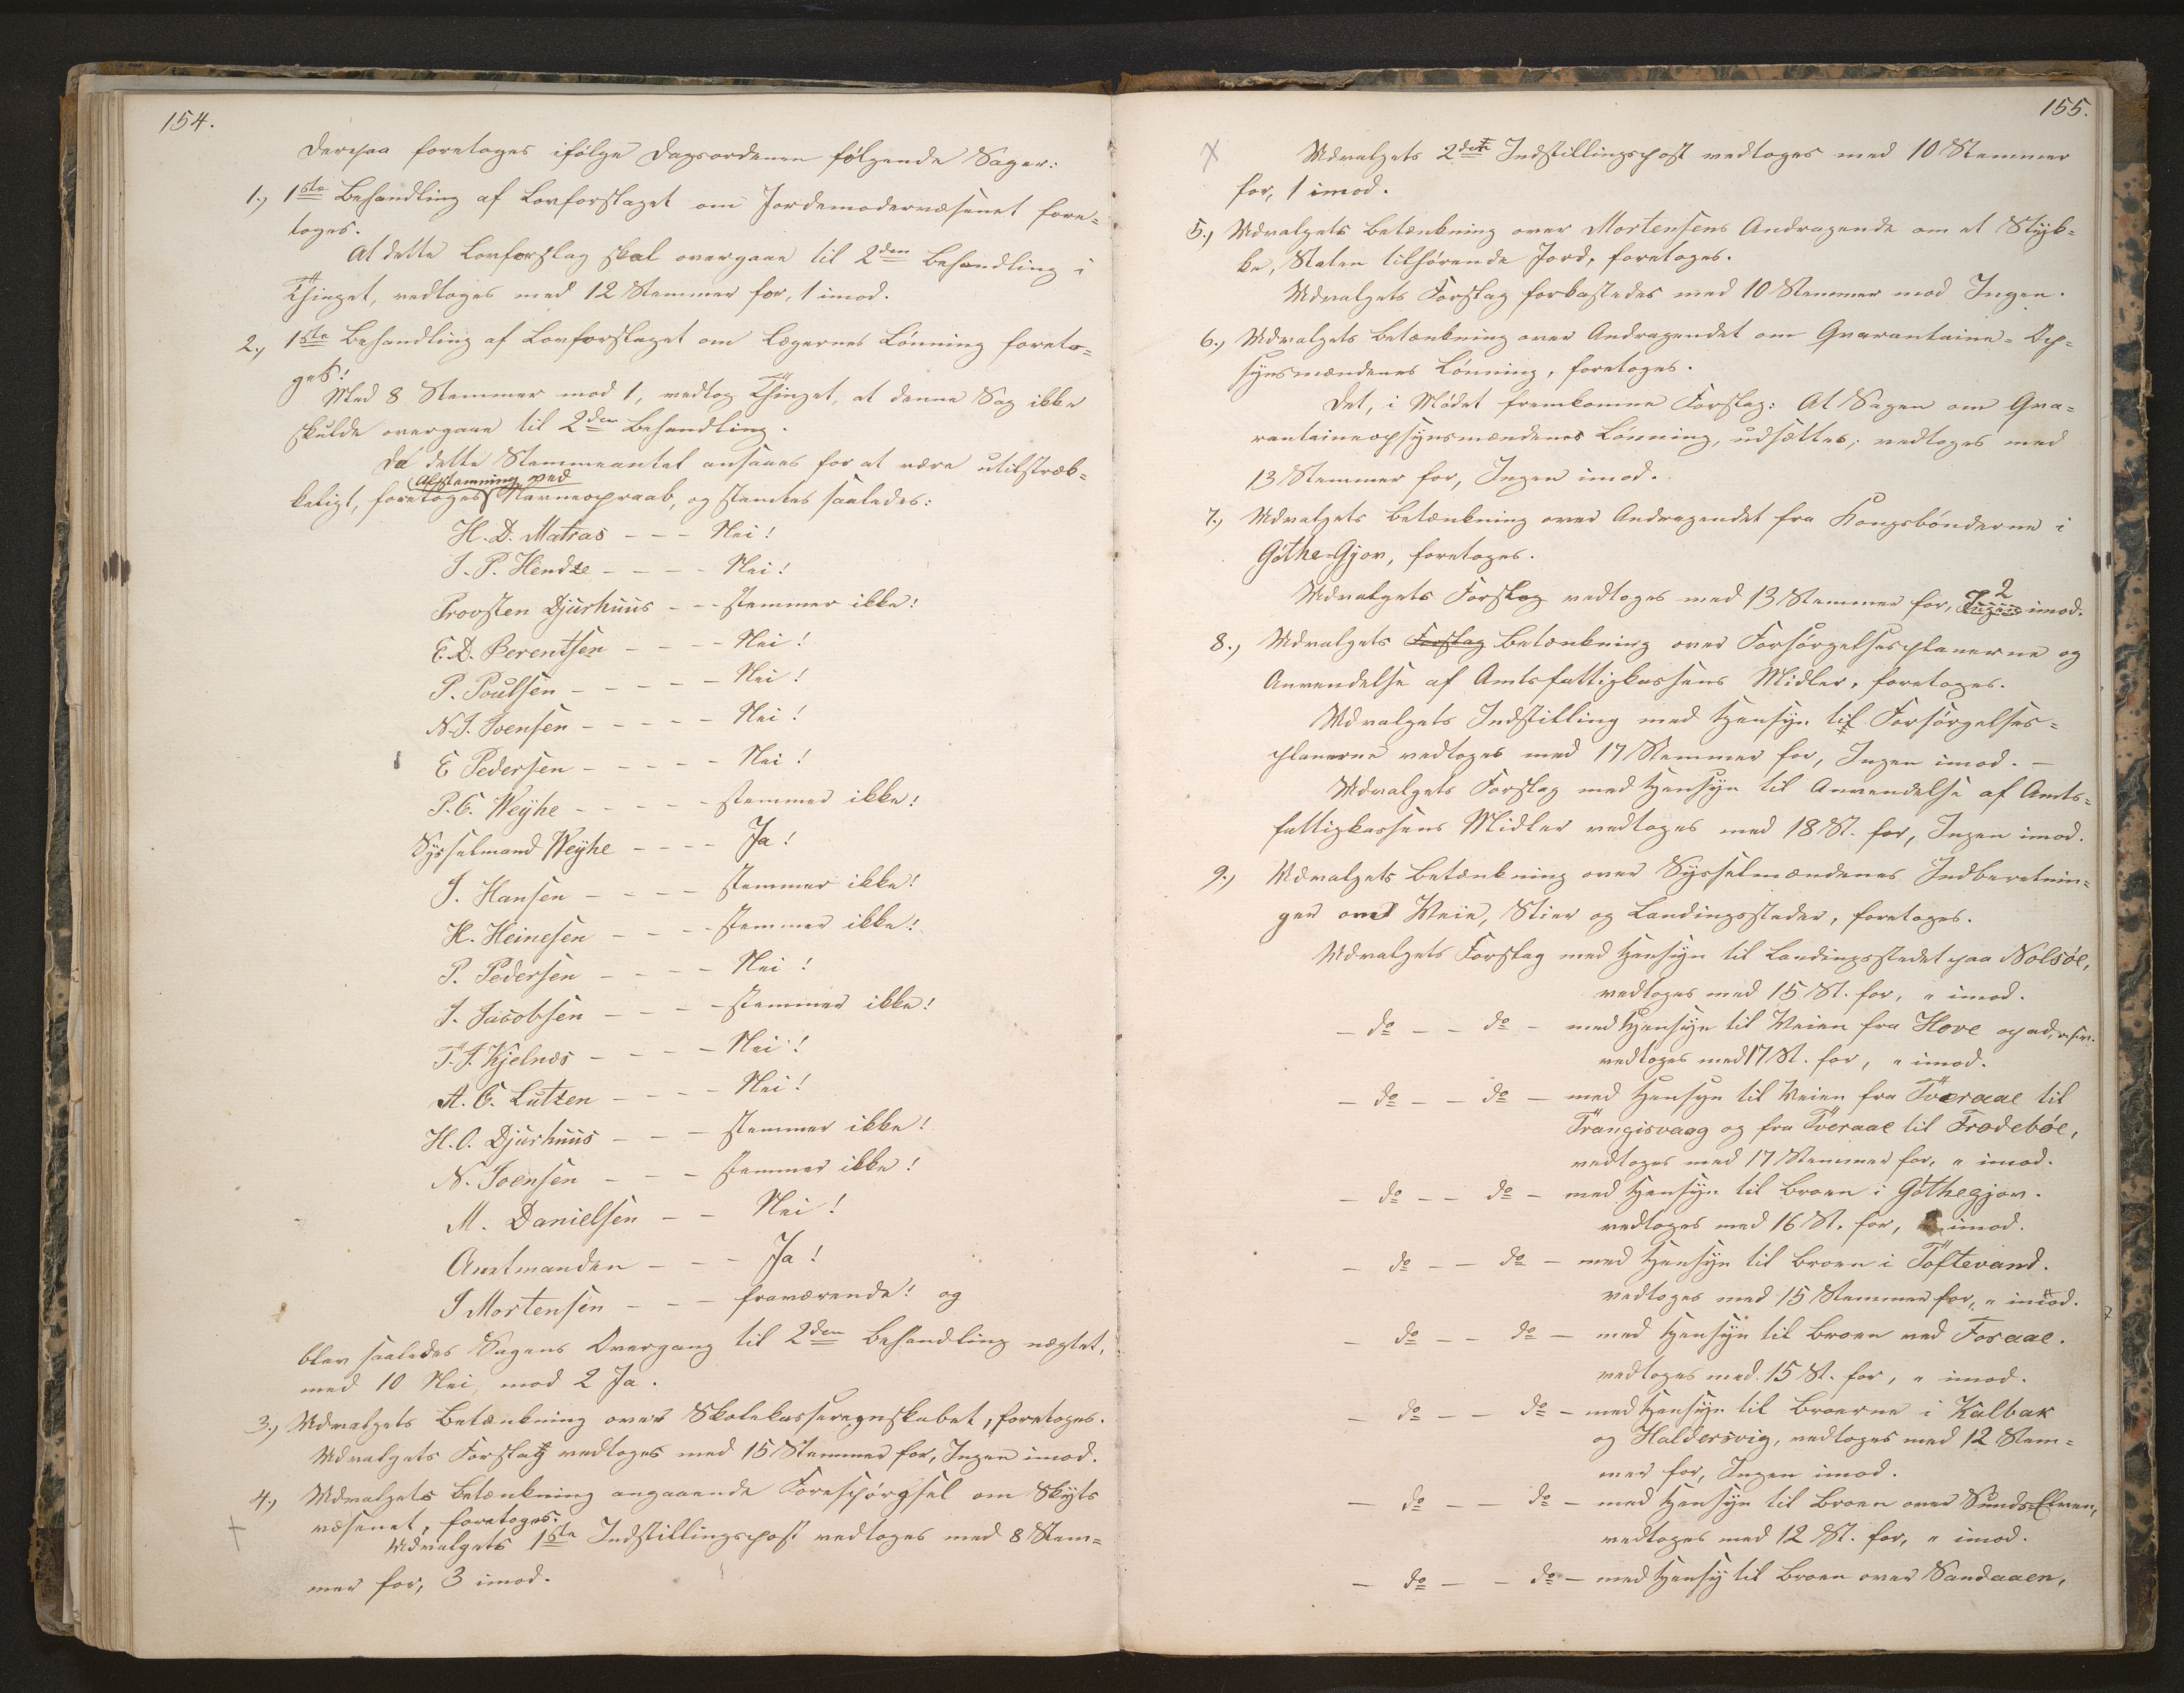 154.
Derpaa foretoges ifølge Dagsordenen følgende Sager:
1., 1ste Behandling af Lovforslaget om Jordemodervæsenet fore-
toges.
At dette Lovforslag skal overgaae til 2den Behandling i
Thinget, vedtoges med 12 Stemmer for, 1 imod.
2., 1ste Behandling af Lovforslaget om Lægernes Lønning foreto-
ges!
Med 8 Stemmer mod 1, vedtog Thinget, at denne Sag ikke
skulde overgaae til 2den Behandling.
Da dette Stemmeantal ansaaes for at være utilstræk-
Afstemning ved
keligt, foretoges Navneopraab, og stemtes saaledes:
H. D. Matras - - - Nei!
J. P. Hendze - - - - Nei!
Provsten Djurhuus - - stemmer ikke!
E. D. Berentsen - - - - Nei!
P. Poulsen - - - - - Nei!
N. J. Joensen - - - - - Nei!
E Pedersen - - - - - Nei!
P. C. Weyhe - - - - - stemmer ikke!
Sysselmand Weyhe - - - - Ja!
J. Hansen - - - - stemmer ikke!
H. Heinesen - - - - stemmer ikke!
P. Pedersen - - - - Nei!
J. Jacobsen - - - - stemmer ikke!
T. J. Kjelnæs - - - - Nei!
A. C. Lützen - - - - Nei!
H. O. Djurhuus - - - stemmer ikke!
N. Joensen - - - stemmer ikke!
M. Danielsen - - Nei!
Amtmanden - - - Ja!
J Mortensen - - - fraværende! og
blev saaledes Sagens Overgang til 2den Behandling nægtet,
med 10 Nei, mod 2 Ja.
3., Udvalgets Betænkning over Skolekasseregnskabet, foretoges.
Udvalgets Forslag vedtoges med 15 Stemmer for, Ingen imod.
4., Udvalgets Betænkning angaaende Forespørgsel om Skyts
væsenet, foretoges.
Udvalgets 1ste Indstillingspost vedtoges med 8 Stem-
mer for, 3 imod.
155.
Udvalgets 2den Indstillingspost vedtoges med 10 Stemmer
for, 1 imod.
5., Udvalgets Betænkning over Mortensens Andragende om et Styk-
ke, Staten tilhørende Jord, foretoges.
Udvalgets Forslag forkastedes med 10 Stemmer mod Ingen.
6., Udvalgets Betænkning over Andragendet om Qvarantaine-Op-
synsmændenes Lønning, foretoges.
Det, i Mødet fremkomne Forslag: At Sagen om Qva-
rantaineopsynsmændenes Lønning, udsættes, vedtoges med
13 Stemmer for, Ingen imod.
7., Udvalgets Betænkning over Andragendet fra Kongsbønderne i
Gøthe-Gjov, foretoges.
2
Udvalgets Forslag vedtoges med 13 Stemmer for, Ingen imod.
8., Udvalgets Forslag Betænkning over Forsørgelsesplanerne og
Anvendelse af Amtsfattigkassens Midler, foretoges.
Udvalgets Indstilling med Hensyn til Forsørgelses-
planerne vedtoges med 17 Stemmer for, Ingen imod. -
Udvalgets Forslag med Hensyn til Anvendelse af Amts-
fattigkassens Midler vedtoges med 18 St. for, Ingen imod.
9., Udvalgets Betænkning over Sysselmændenes Indberetnin-
ger om Veie, Stier og Landingssteder, foretoges.
Udvalgets Forslag med Hensyn til Landingsstedet paa Nolsøe,
vedtoges med 15 St. for, " imod.
- do - - do - med Hensyn til Veien fra Hove opad,
vedtoges med 17 St. for, " imod.
- do - - do - med Hensyn til Veien fra Tværaae til
Trangisvaag og fra Tveraae til Frodebøe,
vedtoges med 17 Stemmer for, " imod.
- do - - do - med Hensyn til Broen i Gøthegjov.
vedtoges med 16 St. for, imod.
- do - - do - med Hensyn til Broen i Toftevand.
vedtoges med 15 Stemmer for, " imod.
- do - - do - med Hensyn til Broen ved Fosaae.
vedtoges med 15 St. for, " imod.
- do - - do - med Hensyn til Broerne i Kalbak
og Haldersvig, vedtoges med 12 Stem-
mer for, Ingen imod.
- do - - do - med Hensyn til Broen over Sunds-Elven,
vedtoges med 12 St. for, " imod.
- do - - do - med Hensy til Broen over Sandaaen,